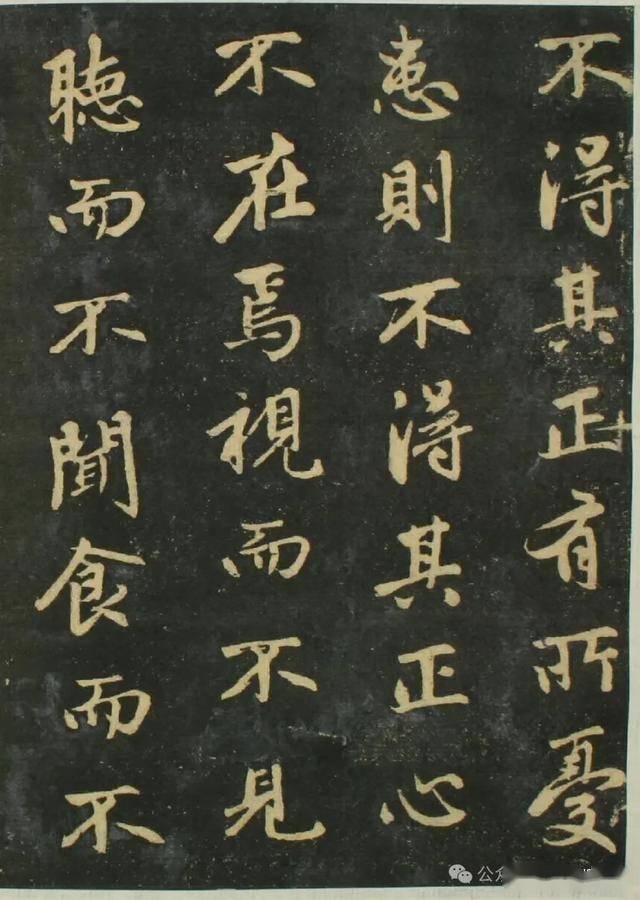 不得其正有所憂
患則不得其正心
不在焉視而不見
聽而不聞食而不
公众